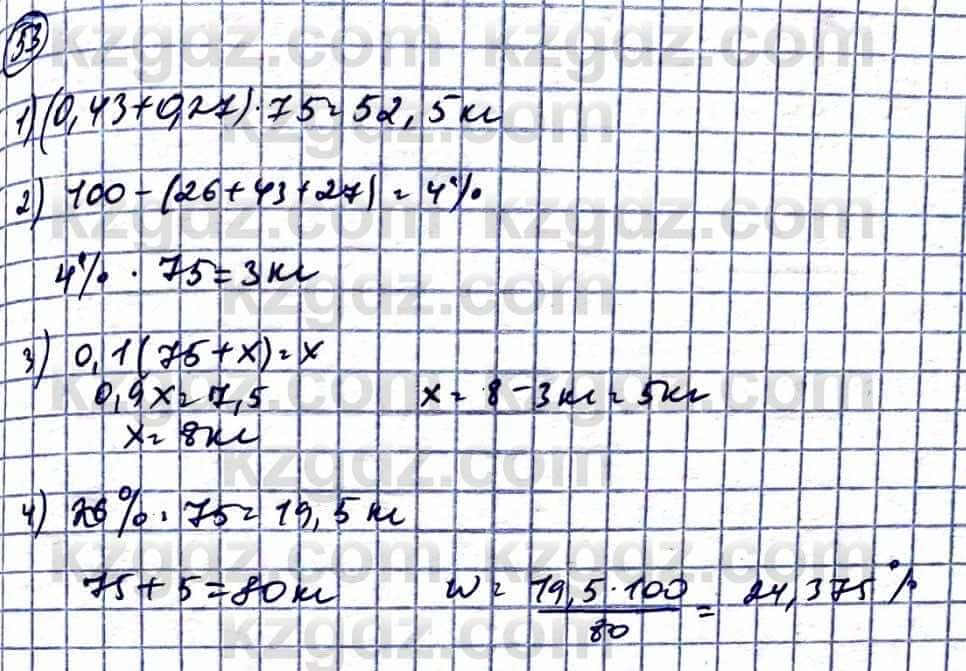 53
kzgdz.com kzgdz.com
1) (0,43+0,27)·75=52,5 кг
kzgdz.com
2) 100-(26+43+27)=4%
kzgdz.com kzgdz.com
4%·75=3кг
kzgdz.com
3) 0,1(75+x)=x
kzgdz.com kzgdz.com
0,9x=7,5 x=8-3кг=5кг
x=8кг
kzgdz.com
4) 26%·75=19,5 кг
kzgdz.com kzgdz.com
75+5=80кг w= 19,5·100 = 24,375%
80
kzgdz.com